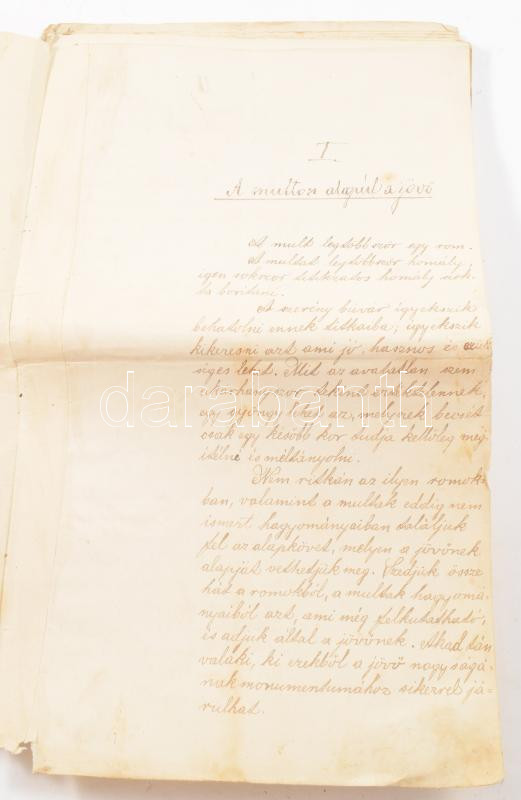 I.
A multon alapúl a jövő
A mult legtöbbször egy rom.
A multat legtöbbször homály,
igen sokszor titokzatos homály szok-
ta borítani.
A szerény búvár igyekszik
behatolni ennek titkaiba; igyekszik
kikeresni azt ami jó, hasznos és szük
séges lehet. Mit az avatatlan szem
talán értéktelennek,
egy gyöngy lehet az, melynek becsét
csak egy később kor tudja kellőleg meg
itélni és méltányolni.
Nem ritkán az ilyen romok-
ban, valamint a multak eddig nem
ismert hagyományaiban találjuk
fel az alapkövet, melyen a jövőnek
alapját vethetjük meg. Szedjük össze
hát a romokból, a multak hagyomá-
nyaiból azt, ami még felkutatható,
és adjuk által a jövőnek. Akad tán
valaki, ki ezekből a jövő nagyságá-
nak monumentumához sikerrel já-
rulhat.
darabanth